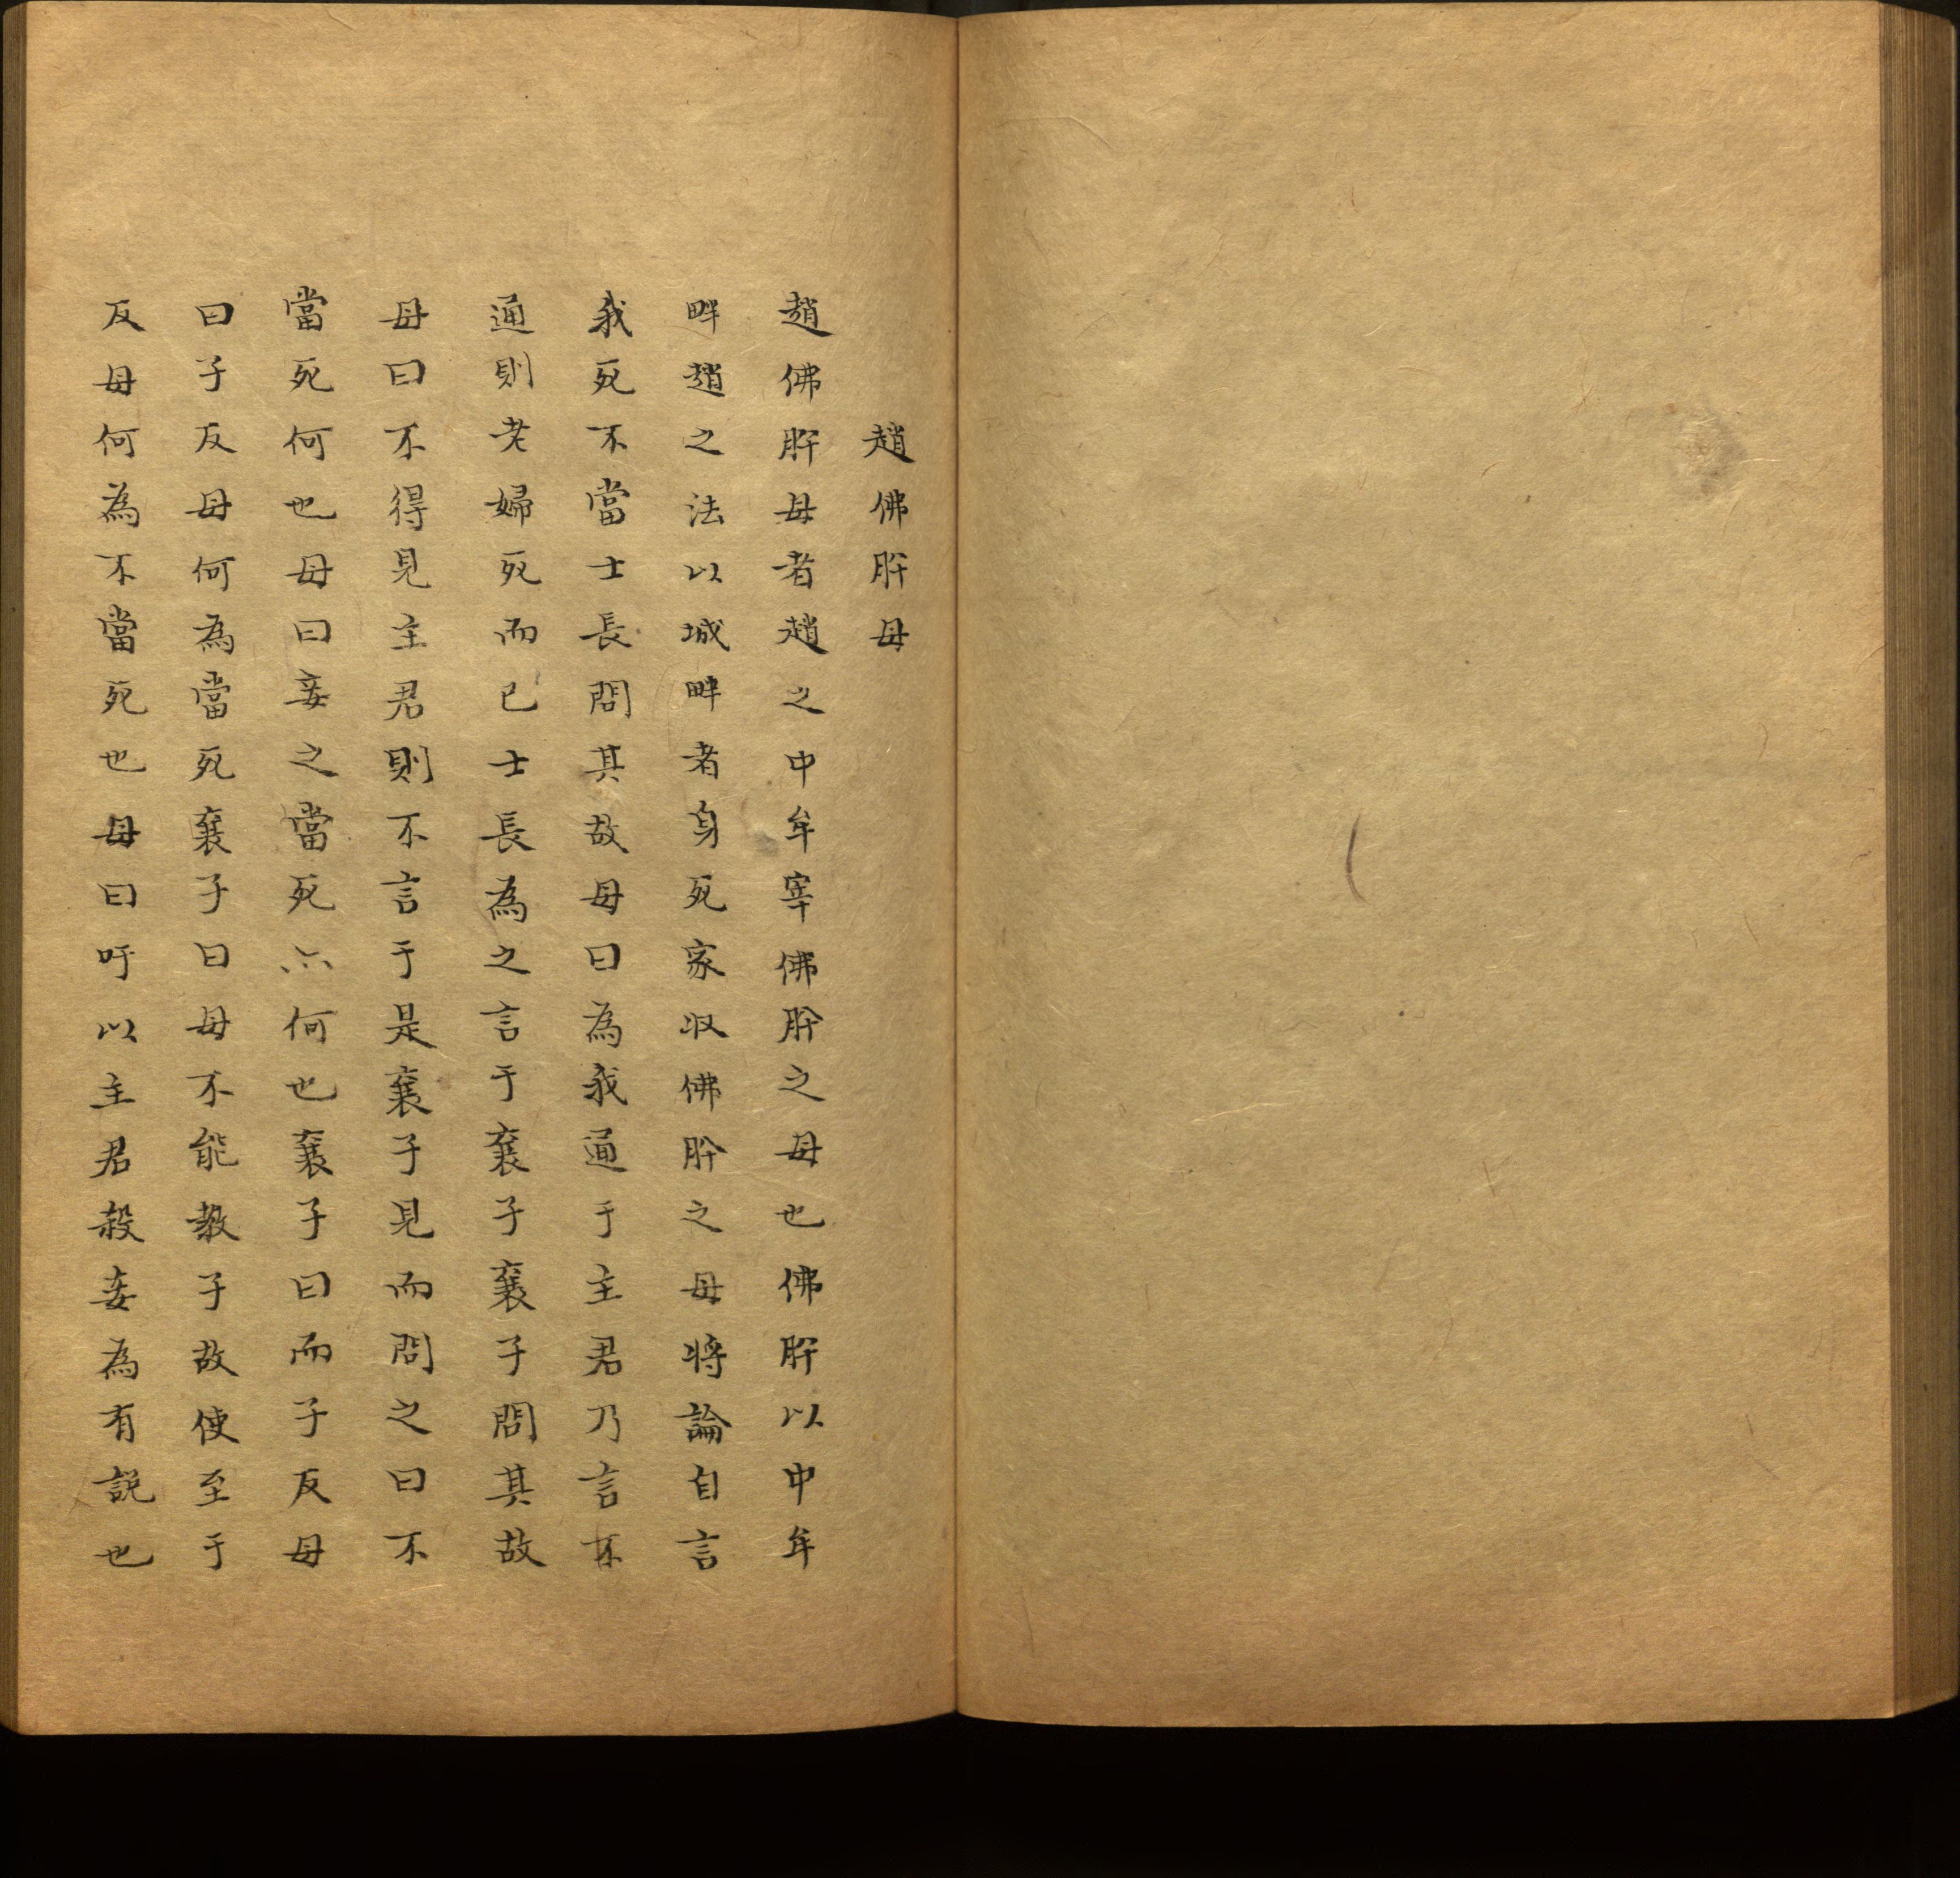 趙佛肸母
趙佛肸母者趙之中牟宰佛肸之母也佛肸以中牟
畔趙之法以城畔者身死家收佛肸之母將論自言
我死不當士長問其故母曰為我通于主君乃言不
通則老婦死而已士長為之言于襄子襄子問其故
母曰不得見主君則不言于是襄子見而問之曰不
當死何也母曰妾之當死亦何也襄子曰而子反母
曰子反母何為當死襄子曰母不能教子故使至于
反母何為不當死也母曰吁以主君殺妾為有說也